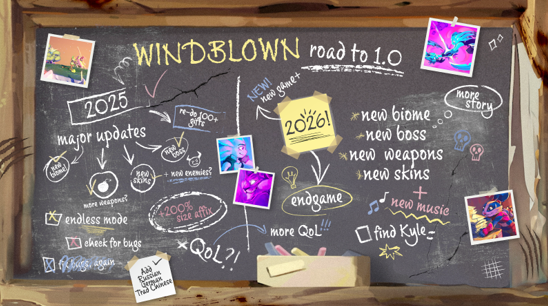 WINDBLOWN road to 1.0
2025
major updates
re-do 100+ gifts
new biome!
more weapons?
new skins
new boss
+ new enemies?
endless mode
check for bugs
fix bugs, again
+200%
size affix
QoL?!
Add
Russian
German
Trad Chinese
NEW!
new game+
2026!
endgame
more QoL!!!
more
story
new biome
new boss
new weapons
new skins
+
new music
find Kyle